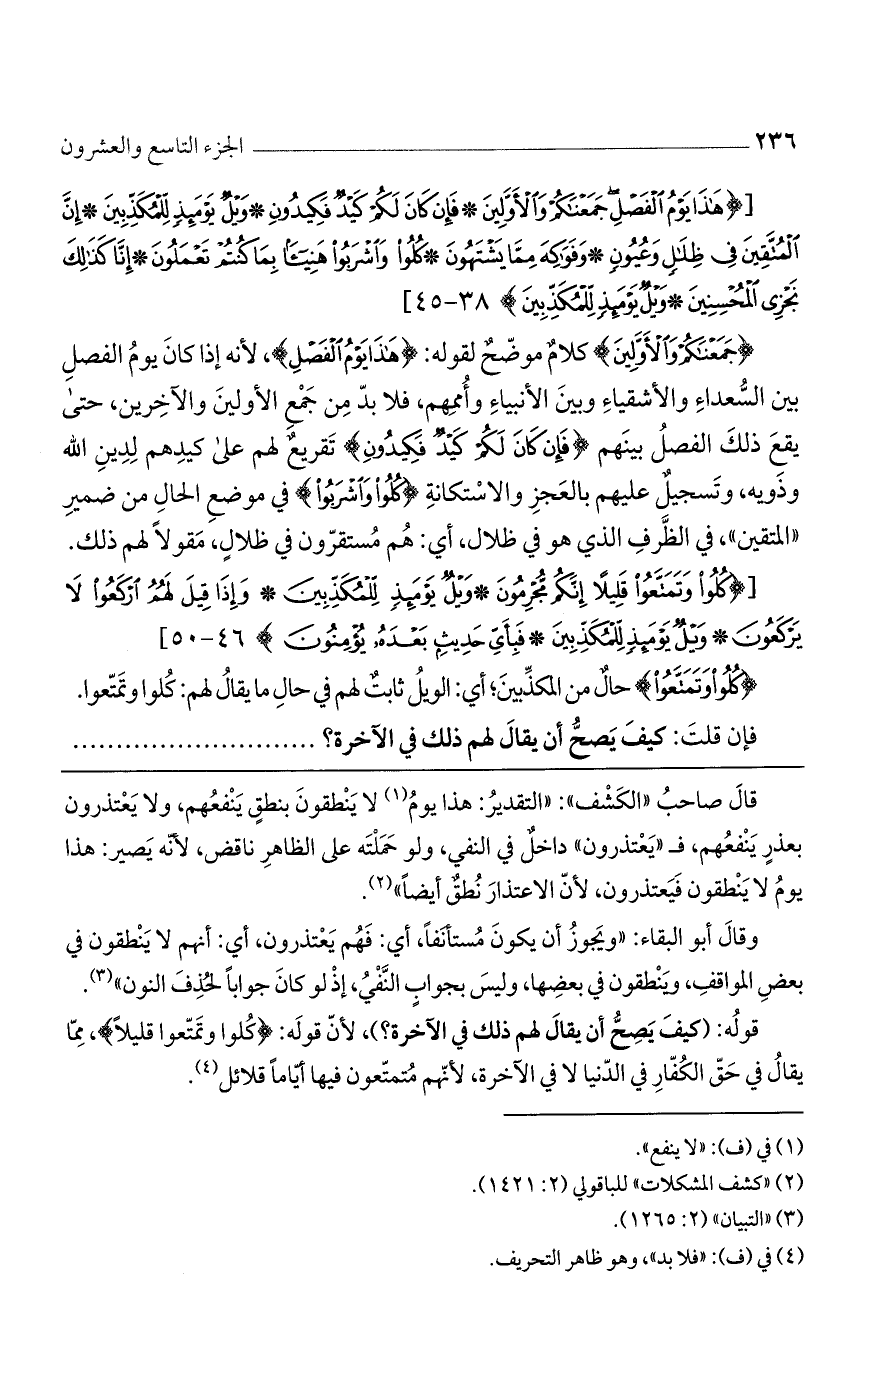 ٢٣٦ ـــــــــــــــــــــ الجزء التاسع والعشرون
[﴿هَٰذَا يَوْمُ ٱلْفَصْلِ ۖ جَمَعْنَٰكُمْ وَٱلْأَوَّلِينَ * فَإِن كَانَ لَكُمْ كَيْدٌ فَكِيدُونِ * وَيْلٌ يَوْمَئِذٍ لِّلْمُكَذِّبِينَ * إِنَّ
ٱلْمُتَّقِينَ فِى ظِلَٰلٍ وَعُيُونٍ * وَفَوَٰكِهَ مِمَّا يَشْتَهُونَ * كُلُوا۟ وَٱشْرَبُوا۟ هَنِيٓـًٔا بِمَا كُنتُمْ تَعْمَلُونَ * إِنَّا كَذَٰلِكَ
نَجْزِى ٱلْمُحْسِنِينَ * وَيْلٌ يَوْمَئِذٍ لِّلْمُكَذِّبِينَ﴾ ٣٨-٤٥]
﴿جَمَعْنَٰكُمْ وَٱلْأَوَّلِينَ﴾ كلامٌ موضّحٌ لقوله: ﴿هَٰذَا يَوْمُ ٱلْفَصْلِ﴾، لأنه إذا كانَ يومُ الفصلِ
بين السُّعداءِ والأشقياءِ وبينَ الأنبياءِ وأُممِهم، فلا بدّ مِن جَمْعِ الأولينَ والآخِرين، حتىٰ
يقعَ ذلكَ الفصلُ بينَهم ﴿فَإِن كَانَ لَكُمْ كَيْدٌ فَكِيدُونِ﴾ تَقريعٌ لهم علىٰ كيدِهم لِدِينِ الله
وذَويه، وتَسجيلٌ عليهم بالعَجزِ والاسْتكانةِ ﴿كُلُوا۟ وَٱشْرَبُوا۟﴾ في موضعِ الحالِ من ضميرِ
«المتقين»، في الظَّرفِ الذي هو في ظلال، أي: هُم مُستقرّون في ظلالٍ، مَقولاً لهم ذلك.
[﴿كُلُوا۟ وَتَمَتَّعُوا۟ قَلِيلًا إِنَّكُم مُّجْرِمُونَ * وَيْلٌ يَوْمَئِذٍ لِّلْمُكَذِّبِينَ * وَإِذَا قِيلَ لَهُمُ ٱرْكَعُوا۟ لَا
يَرْكَعُونَ * وَيْلٌ يَوْمَئِذٍ لِّلْمُكَذِّبِينَ * فَبِأَىِّ حَدِيثٍۭ بَعْدَهُۥ يُؤْمِنُونَ﴾ ٤٦-٥٠]
﴿كُلُوا۟ وَتَمَتَّعُوا۟﴾ حالٌ من المكذِّبينَ؛ أي: الويلُ ثابتٌ لهم في حالِ ما يقالُ لهم: كُلوا وتمتّعوا.
فإن قلتَ: كيفَ يَصحُّ أن يقالَ لهم ذلك في الآخرة؟ ............................
قالَ صاحبُ «الكَشْف»: «التقديرُ: هذا يومُ(١) لا يَنْطقونَ بنطقٍ يَنْفعُهم، ولا يَعْتذرون
بعذرٍ يَنْفعُهم، فـ «يَعْتذرون» داخلٌ في النفي، ولو حَمَلْتَه على الظاهرِ ناقض، لأنّه يَصير: هذا
يومُ لا يَنْطقون فيَعتذرون، لأنّ الاعتذارَ نُطقٌ أيضاً»(٢).
وقالَ أبو البقاء: «ويَجوزُ أن يكونَ مُستأنَفاً، أي: فَهُم يَعْتذرون، أي: أنهم لا يَنْطقون في
بعضِ المواقفِ، ويَنْطقون في بعضِها، وليسَ بجوابِ النَّفْيُ، إذْ لو كانَ جواباً لحُذِفَ النون»(٣).
قولُه: (كيفَ يَصِحُّ أن يقالَ لهم ذلك في الآخرة؟)، لأنّ قولَه: ﴿كُلوا وتمتّعوا قليلاً﴾، مِمّا
يقالُ في حَقّ الكُفّارِ في الدّنيا لا في الآخرة، لأنّهم مُتمتّعون فيها أيّاماً قلائل(٤).
(١) في (ف): «لا ينفع».
(٢) «كشف المشكلات» للباقولي (٢: ١٤٢١).
(٣) «التبيان» (٢: ١٢٦٥).
(٤) في (ف): «فلا بد»، وهو ظاهر التحريف.